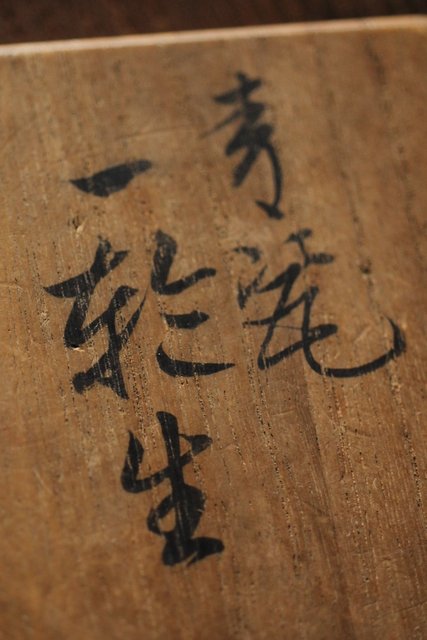 青瓷
一輪生